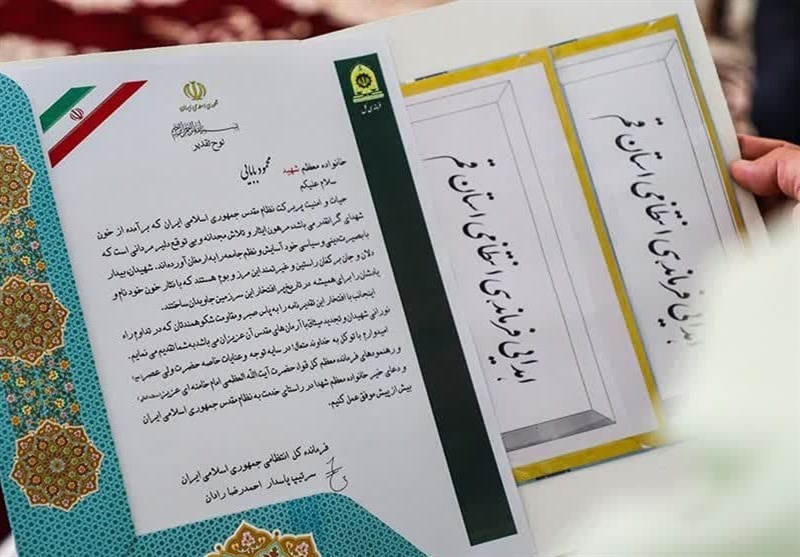 جمهوری اسلامی ایران
لوح تقدیر
خانواده معظم شهید محمود بابالی
سلام علیکم
حیات و امنیت پربرکت نظام مقدس جمهوری اسلامی ایران که برآمده از خون
شهدای گرانقدر می باشد، مرهون ایثار و تلاش مجدانه و بی توقع دلیر مردانی است که
با بصیرت دینی و سیاسی خود آسایش و نظم جامعه را به ارمغان آورده‌اند. شهیدان، بیدار
دلان و جان بر کفان راستین و خیرتمند این مرز و بوم هستند که با نثار خون خود نام و
یادشان را برای همیشه در تاریخ پر افتخار این سرزمین جاویدان ساختند.
اینجانب با افتخار این تقدیرنامه را به پاس صبر و مقاومت شکوهمندتان که در تداوم راه
نورانی شهیدان و تجدید میثاق با آرمان‌های مقدس آن عزیزان می باشد به شما تقدیم می نمایم.
امیدوارم با توکل به خداوند متعال، در سایه توجه و عنایات خاصه حضرت ولی عصر (عج)
و رهنمودهای فرمانده معظم کل قوا، حضرت آیت الله العظمی امام خامنه ای عزیز (مدظله العالی)
و دعای خیر خانواده معظم شهدا در راستای خدمت به نظام مقدس جمهوری اسلامی ایران
بیش از پیش موفق عمل کنیم.
فرمانده کل انتظامی جمهوری اسلامی ایران
سرتیپ پاسدار احمدرضا رادان
اهدایی فرماندهی انتظامی استان قم
اهدایی فرماندهی انتظامی استان قم